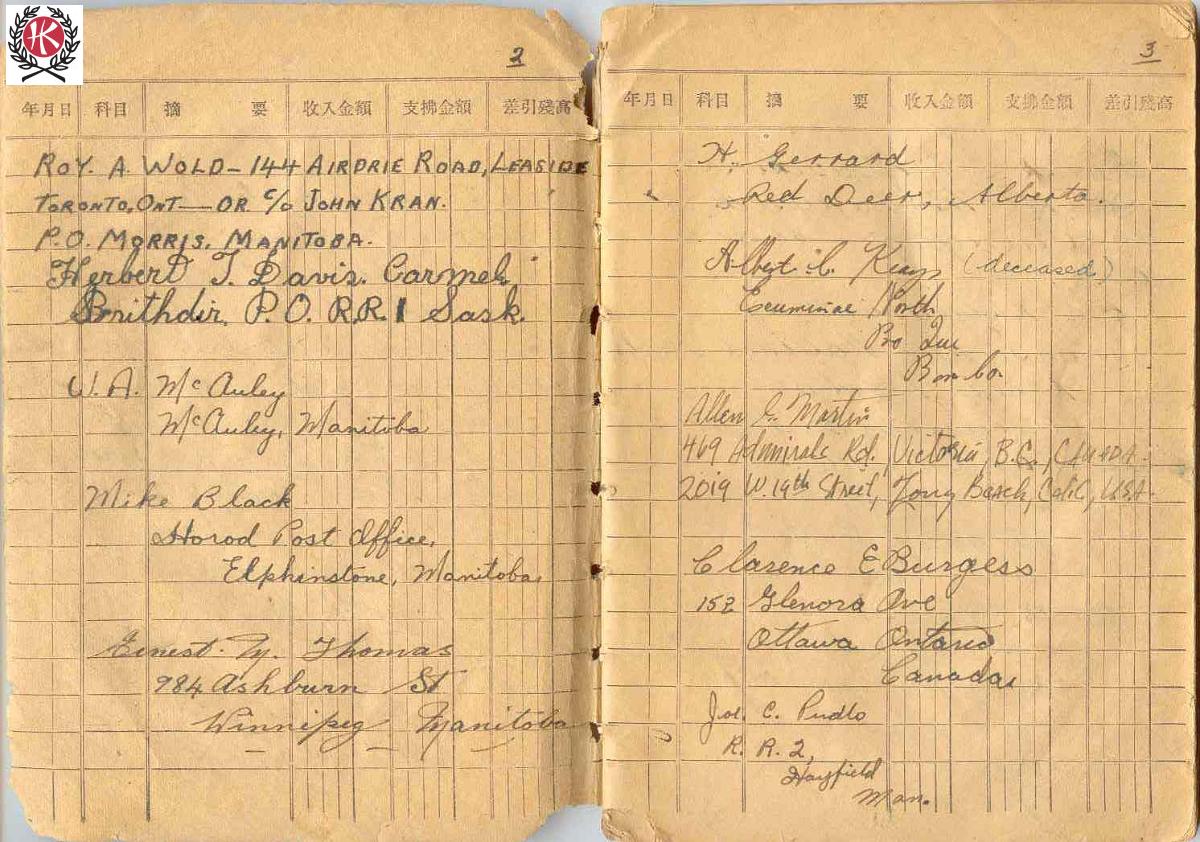 HK
2
年月日 科目 摘要 收入金額 支拂金額 差引殘高
ROY. A. WOLD – 144 AIRDRIE ROAD, LEASIDE
TORONTO, ONT — OR C/O JOHN KRAN.
P.O. MORRIS, MANITOBA.
Herbert T. Davis. Carmel
Brithdir P.O. R.R. 1 Sask.
W. A. McAuley
McAuley, Manitoba
Mike Black
Horod Post Office,
Elphinstone, Manitoba
Ernest. M. Thomas
984 Ashburn St
Winnipeg Manitoba
3
年月日 科目 摘要 收入金額 支拂金額 差引殘高
H. Gerrard
Red Deer, Alberta.
Albert (deceased)
Escuminac North
Que
Allen G. Martin
469 Admirals Rd., Victoria, B.C., CANADA.
2019 W. 19th Street, Long Beach, Calif., U.S.A.
Clarence E Burgess
152 Glenora Ave
Ottawa Ontario
Canada
Jos. C. Pudlo
R. R. 2,
Hayfield
Man.